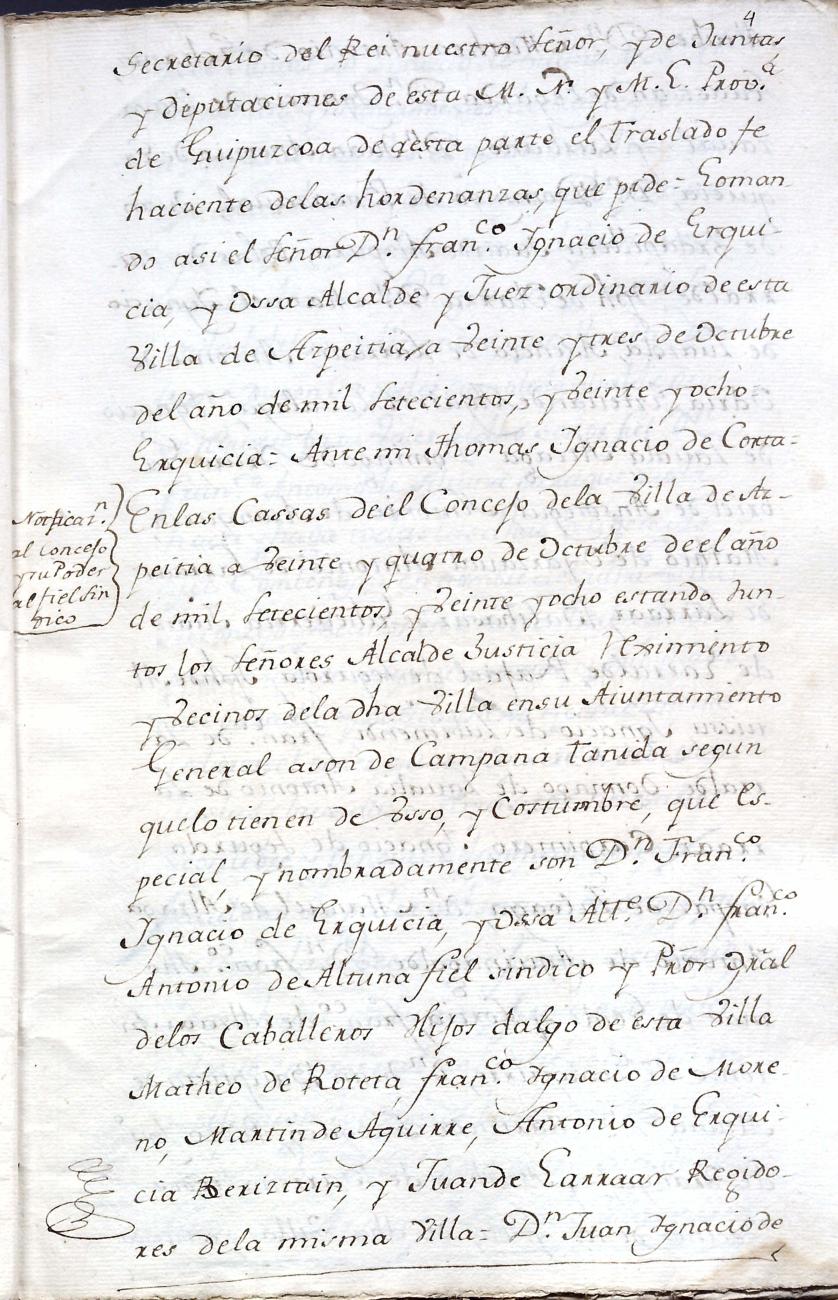 4
Secretario del Rei nuestro señor, y de Juntas
y Diputaciones de esta M. N. y M. L. Prov.ª
de Guipuzcoa de aesta parte el traslado fe
haciente delas hordenanzas, que pide = Loman
do asi el señor Dⁿ. franᶜᵒ. Ignacio de Erqui-
cia, y Ossa Alcalde y Juez ordinario de esta
Villa de Azpeitia, a Veinte y tres de Octubre
del año de mil setecientos, y Veinte y ocho
Erquicia = Ante mi Thomas Ignacio de Corta =
Notificazⁿ.
al Concejo
y su Poder
al fiel sin
dico
En las Cassas de el Concejo de la Villa de Az-
peitia a Veinte y quatro de Octubre de el año
de mil, setecientos, y Veinte y ocho estando Jun-
tos los señores Alcalde Justicia Reximiento
y Vecinos dela dha Villa en su Aiuntamiento
General a son de Campana tanida segun
que lo tienen de Vsso, y Costumbre, que es-
pecial, y nombradamente son Dⁿ. Franᶜᵒ.
Ignacio de Erquicia, y Ossa Alᵗᵉ. Dⁿ. franᶜᵒ.
Antonio de Altuna fiel sindico y Prõr gr̃al
delos Caballeros Hijos dalgo de esta Villa
Matheo de Roteta, franᶜᵒ. Ignacio de More-
no, Martin de Aguirre, Antonio de Erqui-
cia Beriztain, y Juan de Larraar Regido-
res dela misma Villa = Dⁿ. Juan Ignacio de